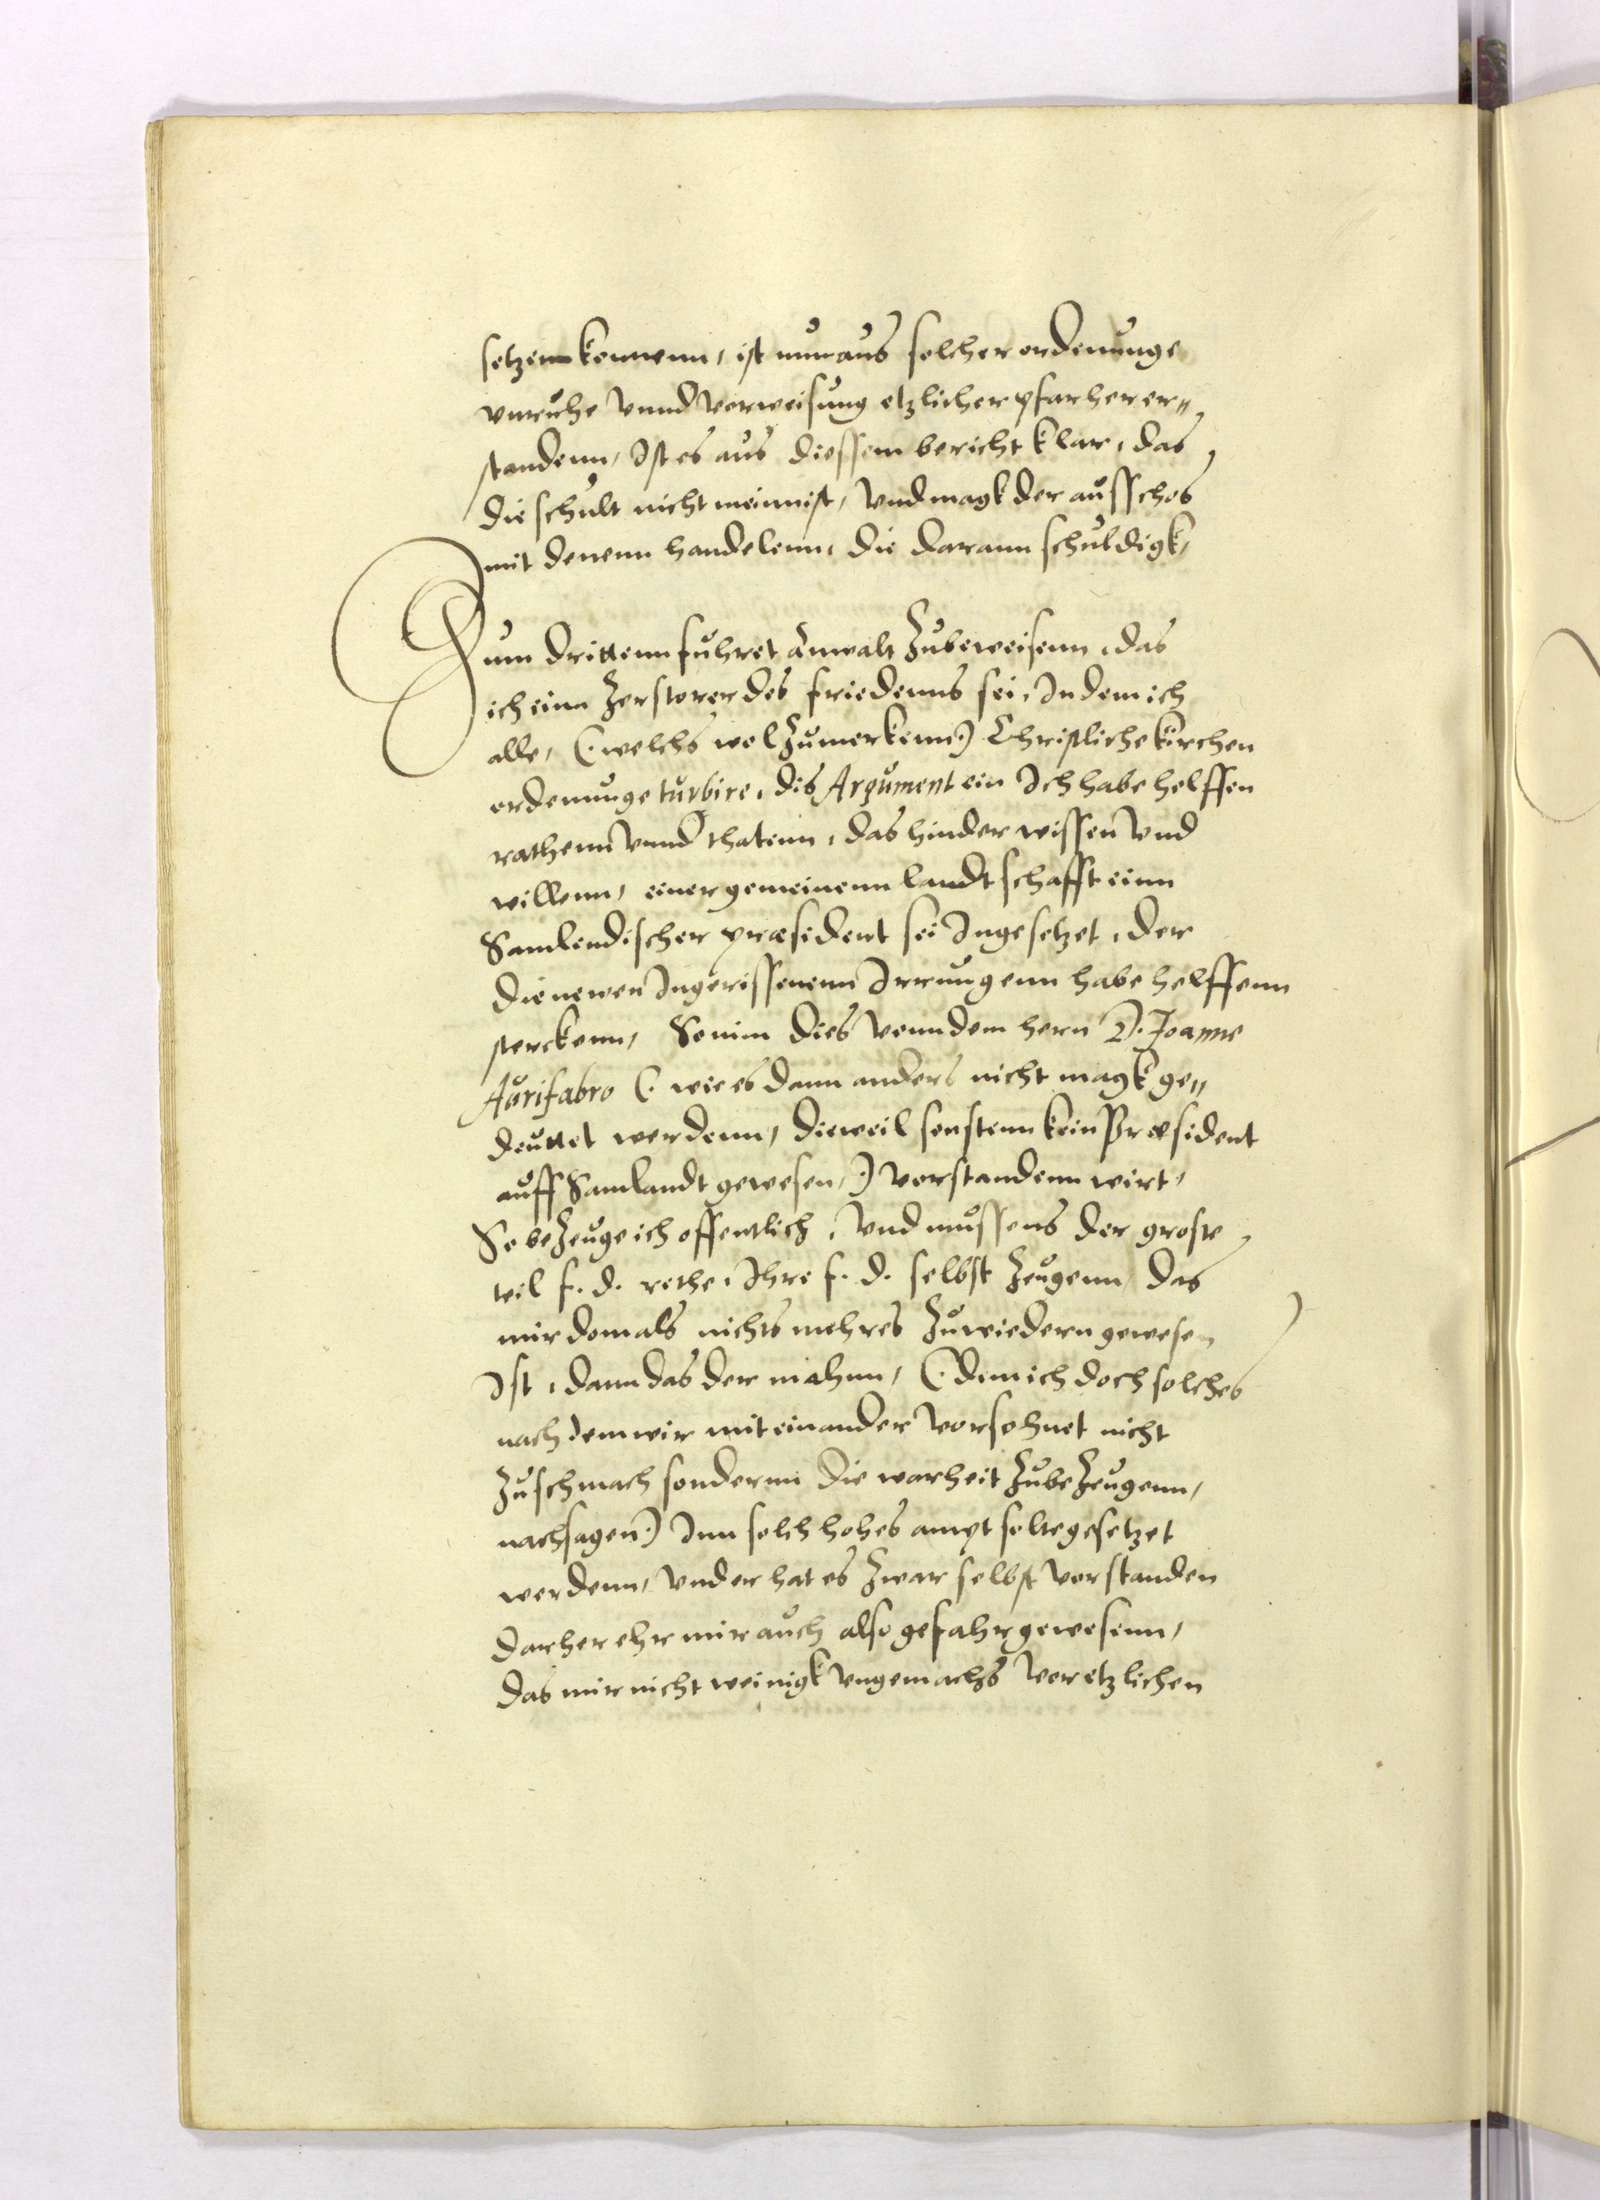 setzen kennenn, ist nun aus solcher ordenunge
unruhe unnd vorweisung etzlicher pfarher er〃
standenn, Ist es aus diessem bericht klar, das
die schult nicht mein ist, Und magk der ausschos
mit denenn handelenn, die darann schuldigk,
Zum drittenn fuhret anwalt zubeweisenn, das
ich einn zerstorer des friedenns sei, In dem ich
alle, (welchs wol zumerkenn) Christliche kirchen
ordenunge turbire, dis Argument ein Ich habe helffen
rathenn unnd thatenn, das hinder wissen und
willenn, einer gemeinenn landtschafft einn
Samlendischer præsident sei Ingesetzet, der
die newen Ingerissenenn Irrungenn habe helffenn
sterckenn, So nun dies vonn dem hern D. Joanne
Aurifabro (wie es dann anders nicht magk ge〃
deuttet werdenn, dieweil sonstenn kein Præsident
auff Samlandt gewesen,) vorstandenn wirt,
So bezeuge ich offentlich, Und mussens der groste
teil f. d. rethe, Ihre f. d. selbst zeugenn, das
mir domals nichts mehres zuwiedern gewesen
Ist, dann das der mahnn, (dem ich doch solches
nach dem wir miteinander vorsohnet nicht
zuschmach sondernn die warheit zubezeugenn,
nachsagen) Inn solch hohes ampt solte gesetzet
werdenn, Und er hat es zwar selbst vorstanden
daher ehr mir auch also gefahr gewesenn,
das mir nicht weinigk ungemachs vor etzlichen